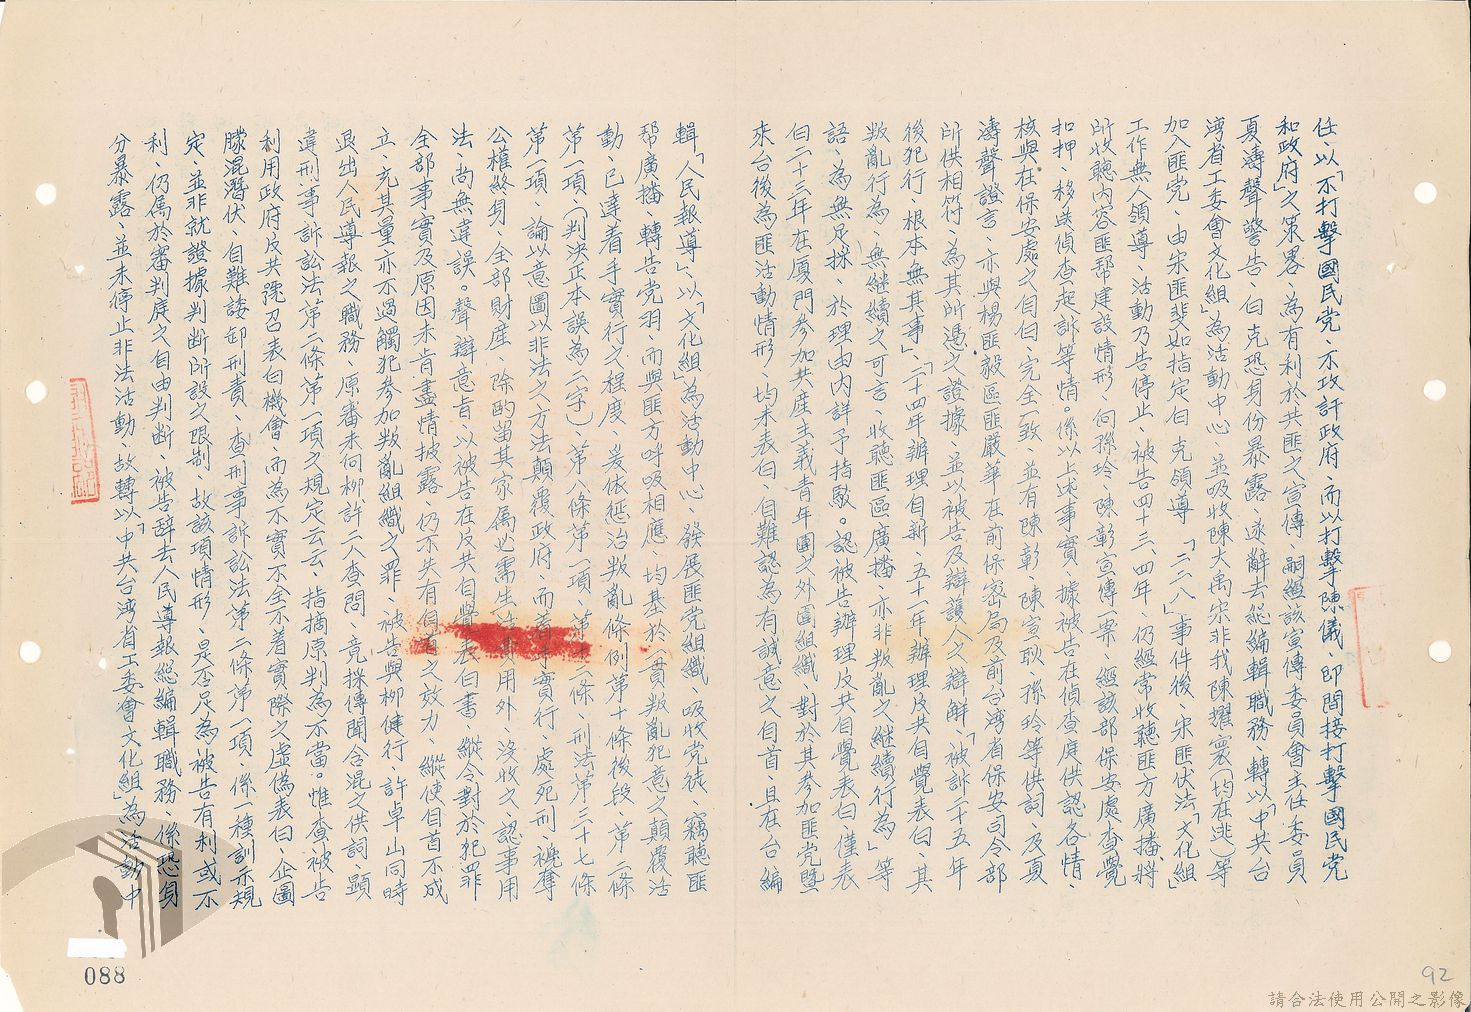 任、以「不打擊國民党、不攻訐政府、而以打擊陳儀、即間接打擊國民党
和政府」之策畧、為有利於共匪之宣傳、嗣經該宣傳委員會主任委員
夏濤聲警告、白克恐身份暴露、遂辭去總編輯職務、轉以「中共台
湾省工委會文化組」為活動中心、並吸收陳大禹宋非我陳耀寰(均在逃)等
加入匪党、由宋匪斐如指定白克領導、「二二八」事件後、宋匪伏法「文化組」
工作無人領導、活動乃告停止、被告四十三、四年、仍經常收聽匪方廣播、將
所收聽內容匪帮建設情形、向孫玲、陳彰宣傳一案、經該部保安處查覺
扣押、移送偵查起訴等情。係以上述事實、據被告在偵查庭供認各情、
核與在保安處之自白、完全一致、並有陳彰、陳宣耿、孫玲等供詞、及夏
濤聲證言、亦與楊匪毅區匪嚴華在前保密局及前台湾省保安司令部
所供相符、為其所憑之證據、並以被告及辯護人之辯解、「被訴二十五年
後犯行、根本無其事」、「二十四年辦理自新、五十一年辦理反共自覺表白、其
叛亂行為、無継續之可言、收聽匪區廣播、亦非叛亂之継續行為」等
語、為無足採、於理由內詳予指駁。認被告辦理反共自覺表白僅表
白二十三年在厦門參加共產主義青年團之外圍組織、對於其參加匪党暨
來台後為匪活動情形、均未表白、自難認為有誠意之自首、且在台編
輯「人民報導」、以「文化組」為活動中心、發展匪党組織、吸收党徒、竊聽匪
帮廣播、轉告党羽、而與匪方呼吸相應、均基於一貫叛亂犯意之顛覆活
動、已達着手實行之程度、爰依懲治叛亂條例第十條後段、第二條
第一項、(判決正本誤為二字)第八條第一項、第十二條、刑法第三十七條
第一項、論以意圖以非法之方法顛覆政府、而着手實行、處死刑、褫奪
公權終身、全部財產、除酌留其家属必需生活費用外、沒收之、認事用
法、尚無違誤。聲辯意旨、以被告在反共自覺表白書、縱令對於犯罪
全部事實及原因未肯盡情披露、仍不失有自首之效力、縱使自首不成
立、充其量亦不過觸犯參加叛亂組織之罪、被告與柳健行、許卓山同時
退出人民導報之職務、原審未向柳、許二人查問、竟採傳聞含混之供詞、顯
違刑事訴訟法第二條第一項之規定云云、指摘原判為不當。惟查被告
利用政府反共號召表白機會、而為不實不全不着實際之虛偽表白、企圖
矇混潛伏、自難諉卸刑責、查刑事訴訟法第二條第一項、係一種訓示規
定、並非就證據判断所設之限制、故該項情形、是否足為被告有利或不
利、仍属於審判庭之自由判断、被告辭去人民導報總編輯職務、係恐身
分暴露、並未停止非法活動、故轉以「中共台湾省工委會文化組」為活動中
088
92
請合法使用公開之影像